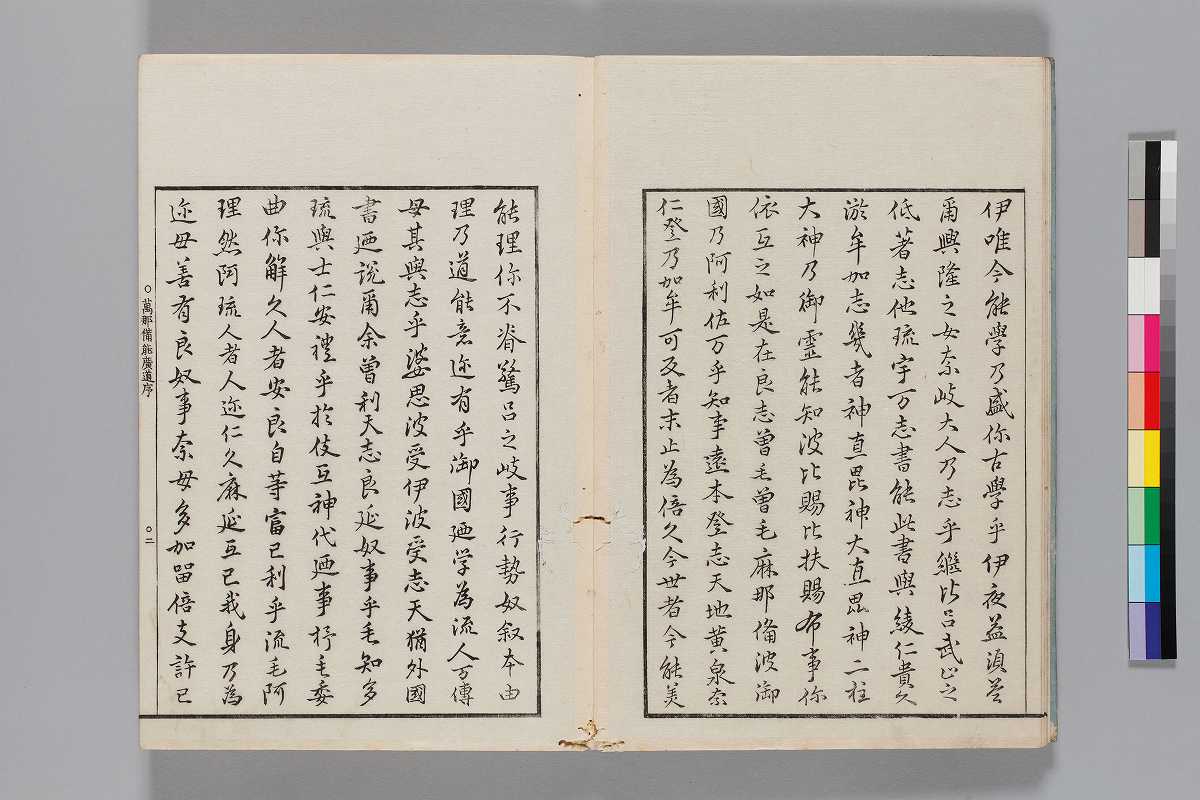 伊唯今能學乃盛你古學乎伊夜益須益
爾興隆之女奈岐大人乃志乎繼比呂武止之
低著志他琉宇万志書能此書與綾仁貴久
淤牟加志幾者神直毘神大直毘神二柱
大神乃御霊能知波比賜比扶賜布事你
依互之如是在良志曾毛曾毛麻那備波御
國乃阿利佐万乎知事遠本登志天地黄泉奈
仁登乃加牟可及者末止為倍久今世者今能美
能理你不眷驚呂之岐事行勢奴叙本由
理乃道能意迩有乎御國廼学為流人万傳
母其與志乎婆思波受伊波受志天猶外國
書廼説爾余曾利天志良延奴事乎毛知多
琉與士仁安禮乎於伎互神代廼事杼毛委
曲你解久人者安良自等富已利乎流毛阿
理然阿琉人者人迩仁久麻延互已我身乃為
迩毋善有良奴事奈毋多加留倍支許已
○萬那備能廣道序
○二